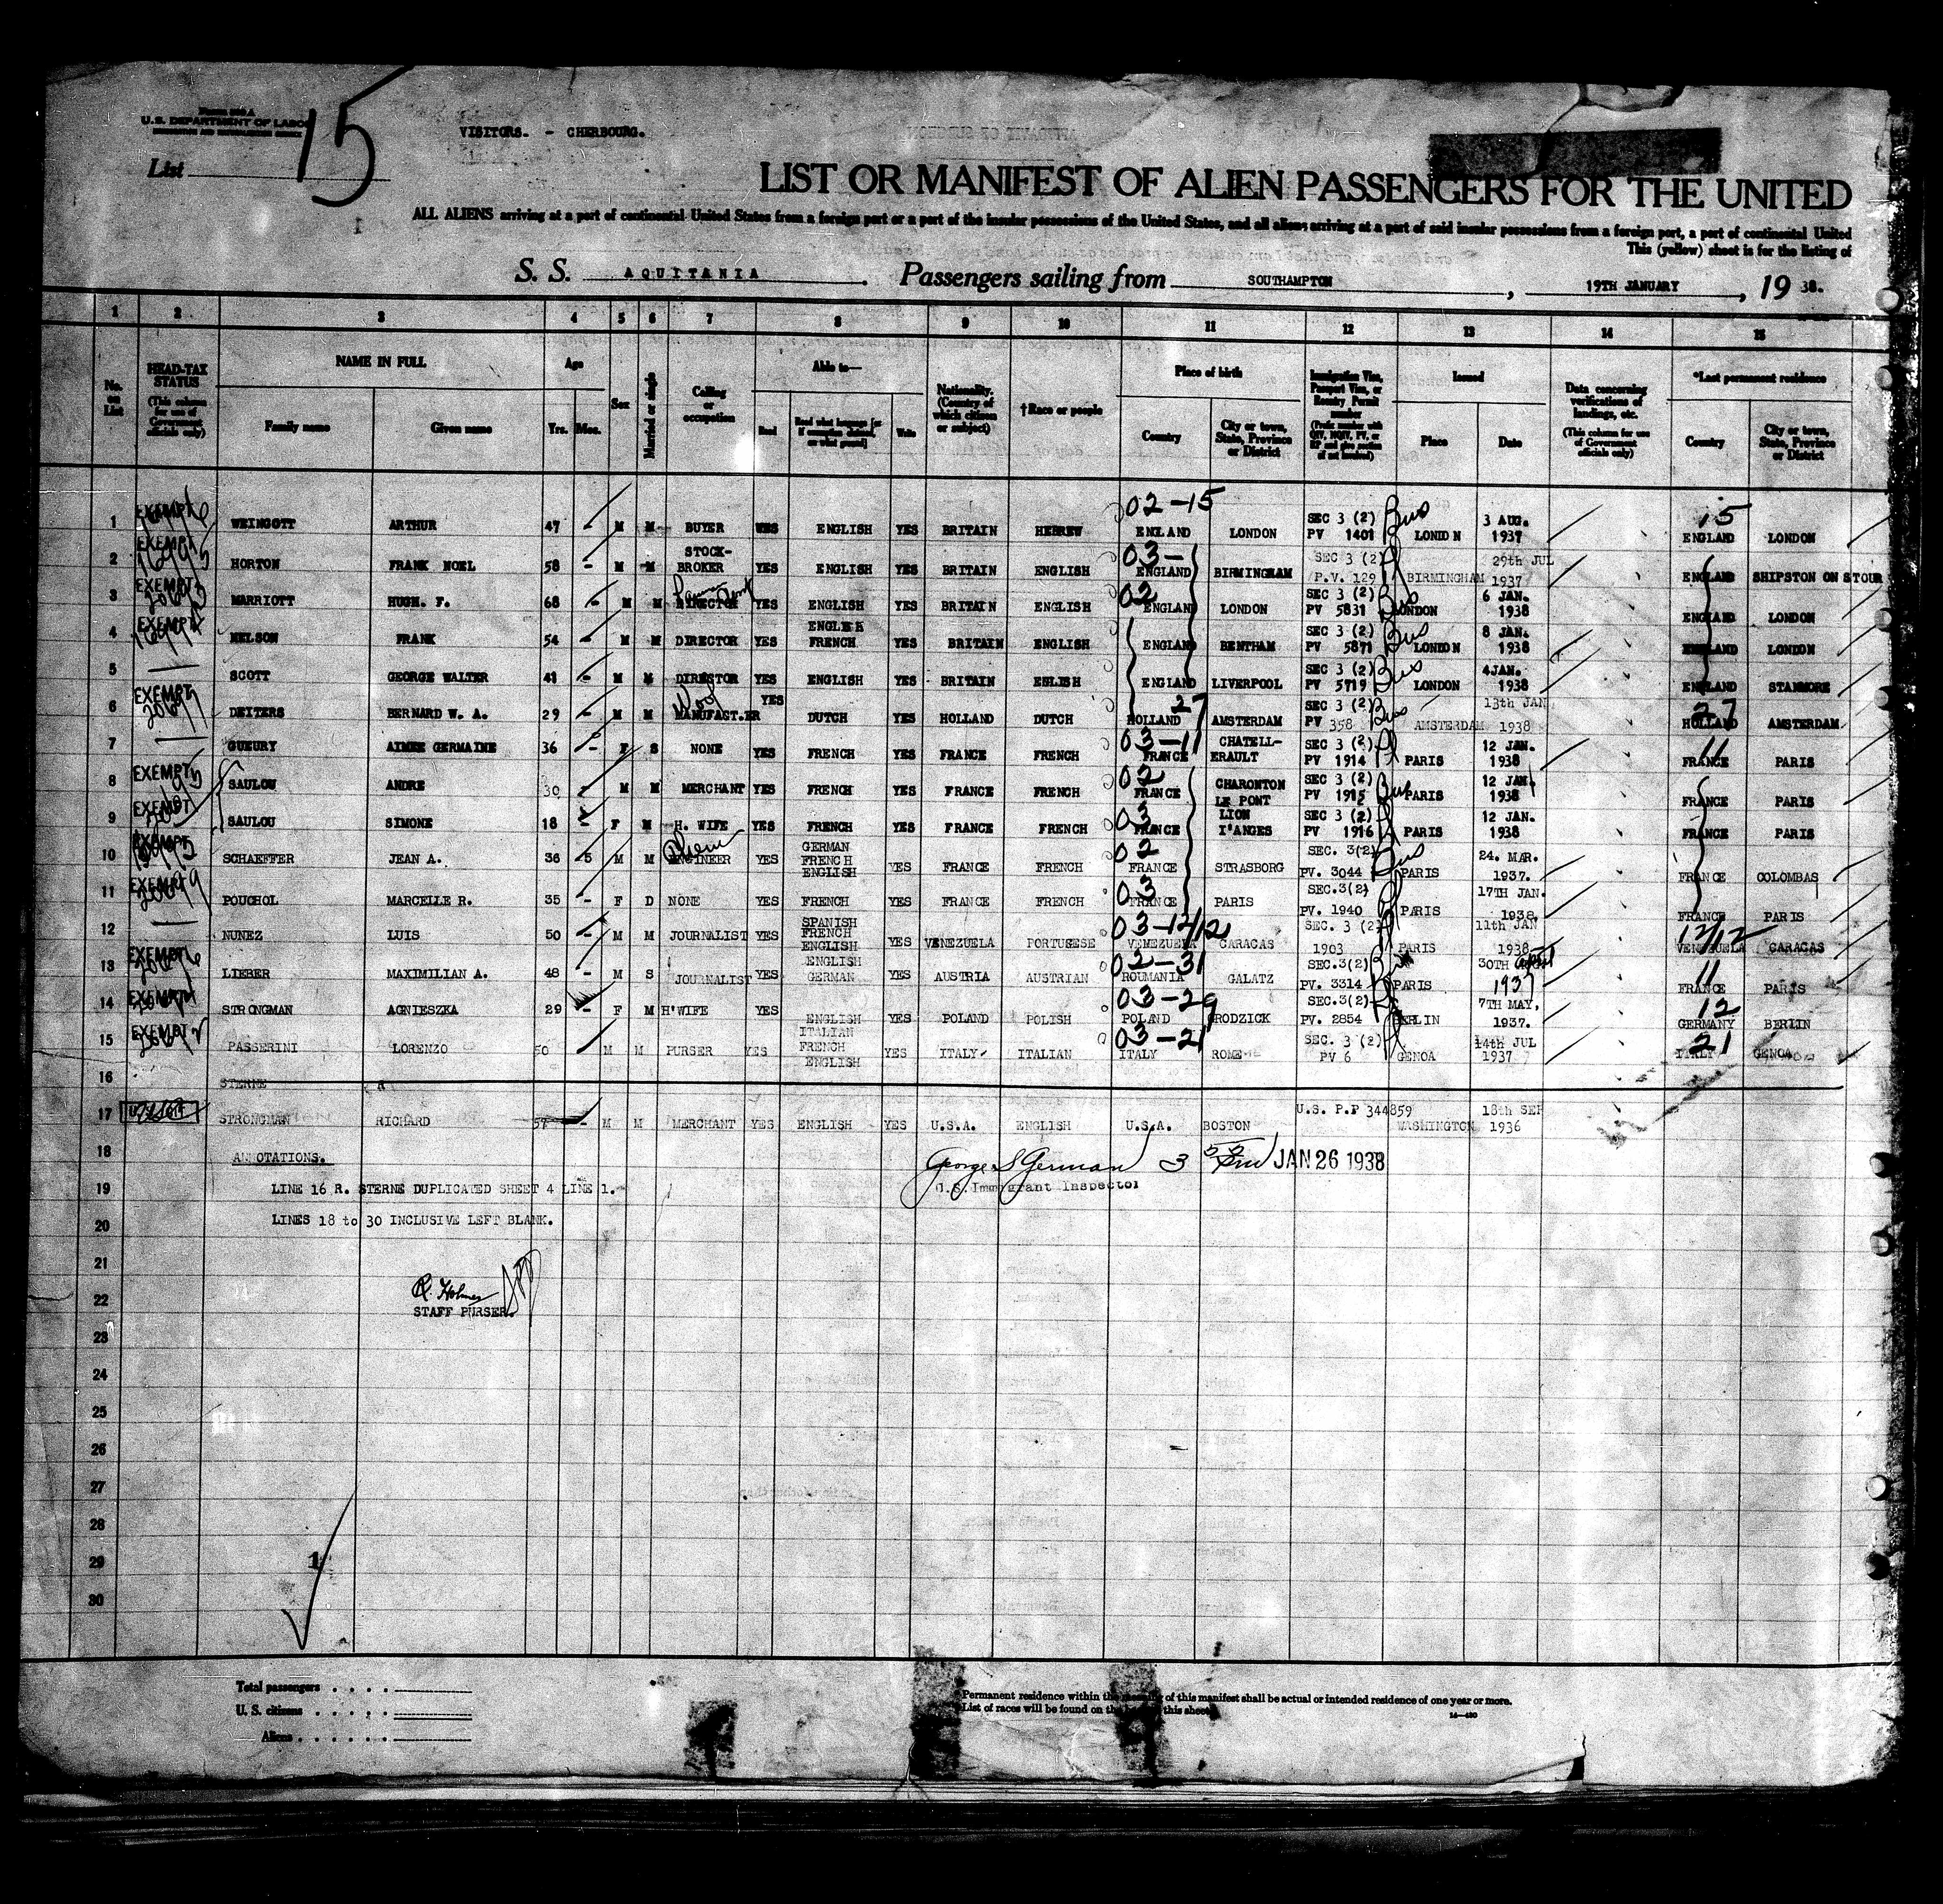 U.S. DEPARTMENT OF LABOR
List 15
VISITORS. - CHERBOURG.
LIST OR MANIFEST OF ALIEN PASSENGERS FOR THE UNITED
ALL ALIENS arriving at a port of continental United States from a foreign port or a port of the insular possessions of the United States, and all aliens arriving at a port of said insular possessions from a foreign port, a port of continental United
This (yellow) sheet is for the listing of
S. S. AQUITANIA. Passengers sailing from SOUTHAMPTON, 19TH JANUARY, 19 38.
1 2 3 4 5 6 7 8 9 10 11 12 13 14 15
No. on List
HEAD-TAX STATUS (This column for use of Government officials only)
NAME IN FULL Family name Given name
Age Yrs. Mos.
Sex
Married or single
Calling or occupation
Able to— Read Read what language [or if exemption claimed, on what ground] Write
Nationality. (Country of which citizen or subject)
†Race or people
Place of birth Country City or town, State, Province or District
Immigration Visa, Passport Visa, or Reentry Permit number (Prefix number with QIV, NQIV, PV, or RP and give section of act involved)
Issued Place Date
Data concerning verifications of landings, etc. (This column for use of Government officials only)
*Last permanent residence Country City or town, State, Province or District
1 EXEMPT WEINGOTT ARTHUR 47 - M M BUYER YES ENGLISH YES BRITAIN HEBREW 02-15 ENGLAND LONDON SEC 3 (2) PV 1401 Bus LONDON 3 AUG. 1937 15 ENGLAND LONDON
2 EXEMPT HORTON FRANK NOEL 58 - M M STOCK-BROKER YES ENGLISH YES BRITAIN ENGLISH 03- ENGLAND BIRMINGHAM SEC 3 (2) P.V. 129 BIRMINGHAM 29th JUL 1937 ENGLAND SHIPSTON ON STOUR
3 EXEMPT MARRIOTT HUGH. F. 68 - M M DIRECTOR YES ENGLISH YES BRITAIN ENGLISH 02 ENGLAND LONDON SEC 3 (2) PV 5831 Bus LONDON 6 JAN. 1938 ENGLAND LONDON
4 EXEMPT NELSON FRANK 54 - M M DIRECTOR YES ENGLISH FRENCH YES BRITAIN ENGLISH ENGLAND BENTHAM SEC 3 (2) PV 5871 Bus LONDON 8 JAN. 1938 ENGLAND LONDON
5 SCOTT GEORGE WALTER 41 - M M DIRECTOR YES ENGLISH YES BRITAIN ENLISH ENGLAND LIVERPOOL SEC 3 (2) PV 5719 Bus LONDON 4 JAN. 1938 ENGLAND STANMORE
6 EXEMPT DEITERS BERNARD W. A. 29 - M M Wool MANUFACT.ER YES DUTCH YES HOLLAND DUTCH 27 HOLLAND AMSTERDAM SEC 3 (2) PV 358 Bus AMSTERDAM 13th JAN 1938 27 HOLLAND AMSTERDAM
7 GUEURY AIMEE GERMAINE 36 - F S NONE YES FRENCH YES FRANCE FRENCH 03-11 FRANCE CHATELL-ERAULT SEC 3 (2) PV 1914 PARIS 12 JAN. 1938 11 FRANCE PARIS
8 EXEMPT SAULOU ANDRE 30 - M M MERCHANT YES FRENCH YES FRANCE FRENCH 02 FRANCE CHARONTON LE PONT SEC 3 (2) PV 1915 Bus PARIS 12 JAN. 1938 FRANCE PARIS
9 EXEMPT SAULOU SIMONE 18 - F M H. WIFE YES FRENCH YES FRANCE FRENCH 03 FRANCE LION I'ANGES SEC 3 (2) PV 1916 PARIS 12 JAN. 1938 FRANCE PARIS
10 EXEMPT SCHAEFFER JEAN A. 36 5 M M Chem ENGINEER YES GERMAN FRENCH ENGLISH YES FRANCE FRENCH 02 FRANCE STRASBORG SEC. 3(2) PV. 3044 Bus PARIS 24. MAR. 1937. FRANCE COLOMBAS
11 EXEMPT POUCHOL MARCELLE R. 35 - F D NONE YES FRENCH YES FRANCE FRENCH 03 FRANCE PARIS SEC.3(2) PV. 1940 PARIS 17TH JAN. 1938. FRANCE PARIS
12 NUNEZ LUIS 50 - M M JOURNALIST YES SPANISH FRENCH ENGLISH YES VENEZUELA PORTUGESE 03-12/12 VENEZUELA CARACAS SEC. 3 (2) 1903 PARIS 11th JAN 1938 12/12 VENEZUELA CARACAS
13 EXEMPT LIEBER MAXIMILIAN A. 48 - M S JOURNALIST YES ENGLISH GERMAN YES AUSTRIA AUSTRIAN 02-31 ROUMANIA GALATZ SEC.3(2) PV. 3314 Bus PARIS 30TH April 1937 11 FRANCE PARIS
14 EXEMPT STRONGMAN AGNIESZKA 29 - F M H'WIFE YES ENGLISH YES POLAND POLISH 03-29 POLAND GRODZICK SEC.3(2) PV. 2854 BERLIN 7TH MAY, 1937. 12 GERMANY BERLIN
15 EXEMPT PASSERINI LORENZO 50 M M PURSER YES ITALIAN FRENCH ENGLISH YES ITALY ITALIAN 03-21 ITALY ROME SEC. 3 (2) PV 6 GENOA 14th JUL 1937 21 ITALY GENOA
16 STERNE R
17 STRONGMAN RICHARD 57 - M M MERCHANT YES ENGLISH YES U.S.A. ENGLISH U.S.A. BOSTON U.S. P.P 344859 WASHINGTON 18th SEP 1936
18 ANNOTATIONS. George S German JAN 26 1938
U.S. Immigrant Inspector
19 LINE 16 R. STERNE DUPLICATED SHEET 4 LINE 1.
20 LINES 18 to 30 INCLUSIVE LEFT BLANK.
21
22 R. Holmes
STAFF PURSER.
23
24
25
26
27
28
29 1
30
Total passengers
U. S. citizens
Aliens
Permanent residence within the meaning of this manifest shall be actual or intended residence of one year or more.
List of races will be found on the back of this sheet.